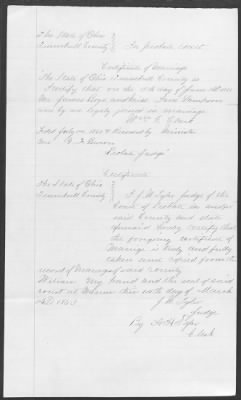 The State of Ohio
Trumbull County } In probate court
Certificate of Marriage
The State of Ohio Trumbull County ss
I certify that on the 4th day of June
Mr James and Miss Jane
was by me legally joined in marriage
Wm C Clark
Filed July 1851 & Recorded by Minister
Probate Judge
Certificate
The State of Ohio
Trumbull County } I J W Tyler judge of the
Court of Probate in and for
said County and state
aforesaid hereby certify that
the foregoing certificate of
Marriage is truly and fully
taken and copied from the
record of Marriages of said county
Witness My hand and the seal of said
court at Warren this 10th day of March
AD
J W Tyler
Judge
By Tyler
Clerk